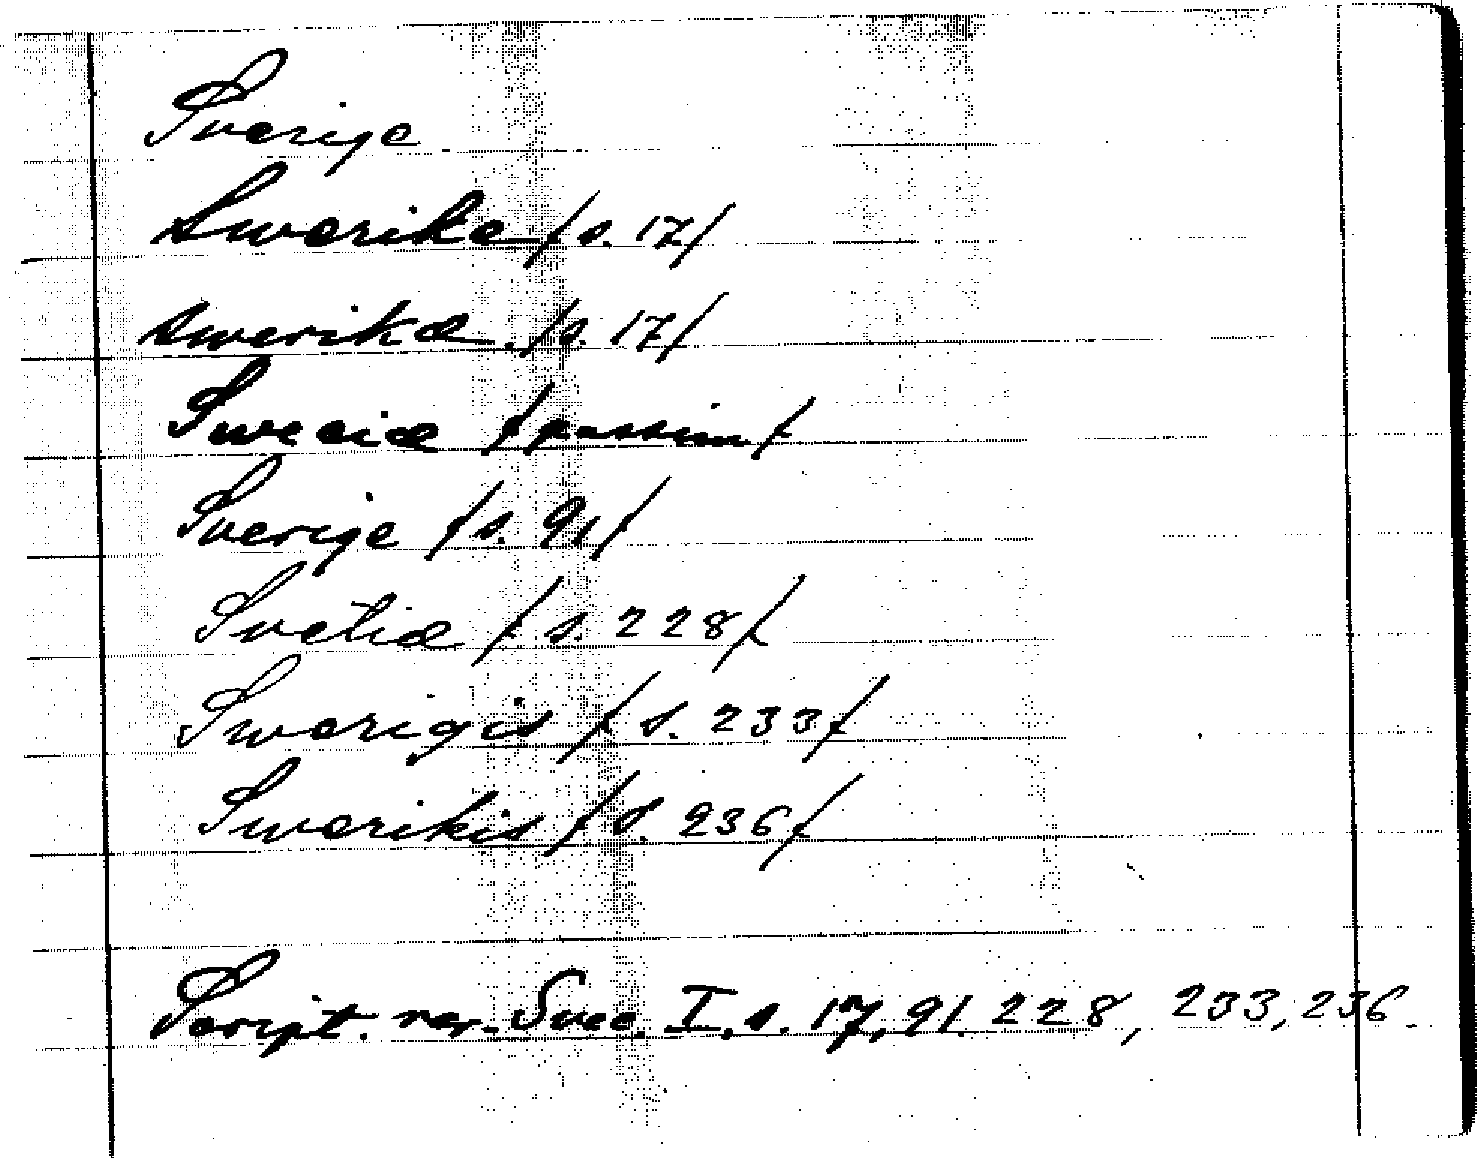 Sverige
Swerike /s. 17/
swerikæ /s. 17/
Sweciæ /passim/
Sverige /s. 91/
Svetiæ /s. 228/
Swerigis /s. 233/
Swerikis /s. 236/
Script. rer. Svec. I, s. 17, 91, 228, 233, 236.